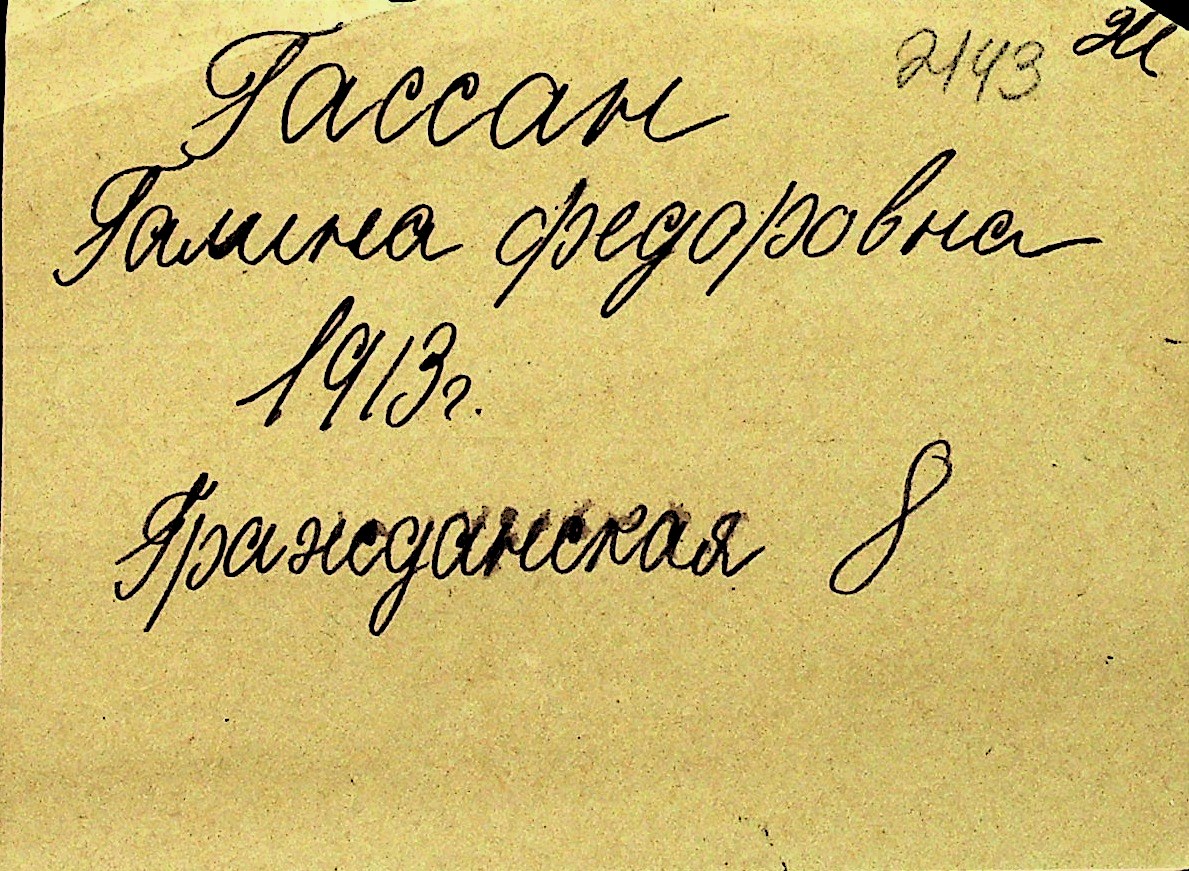 2143
Гассан
Галина федоровна
1913г.
Гражданская 8